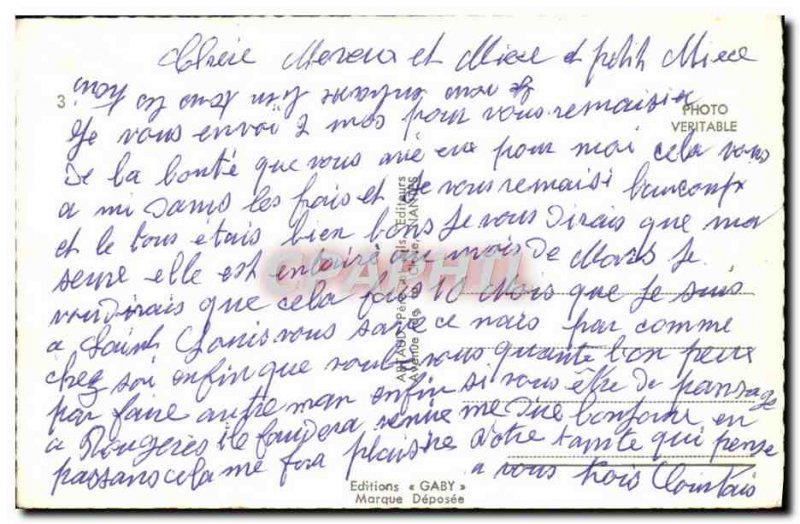 Chère Mereva et Miece et petit Miece
3
Je vous envoï 2 mos pour vous remaisier
PHOTO
VERITABLE
De la bonté que vous avié eu pour moi cela vous
a mi dams les frais et je vous remaisi baucoux
et le tous etais bien bons Je vous Dirais que ma
seure elle est entairé au mois de Mars Je
voudirais que cela fais 10 Mois que Je suis
a Saint Louis vous save ce nais par comme
chez soi enfin que voule vous quante bon peux
par faire autre man enfin si vous être De passage
a Rougères ile faudera venire me Dire bonjoure en
passans cela me fera plaisire Votre tante qui pense
a vous trois
Editions « GABY »
Marque Déposée
ARTAUD Père et Fils, Editeurs
Avenue de la Close, NANTES
CPAPHIL